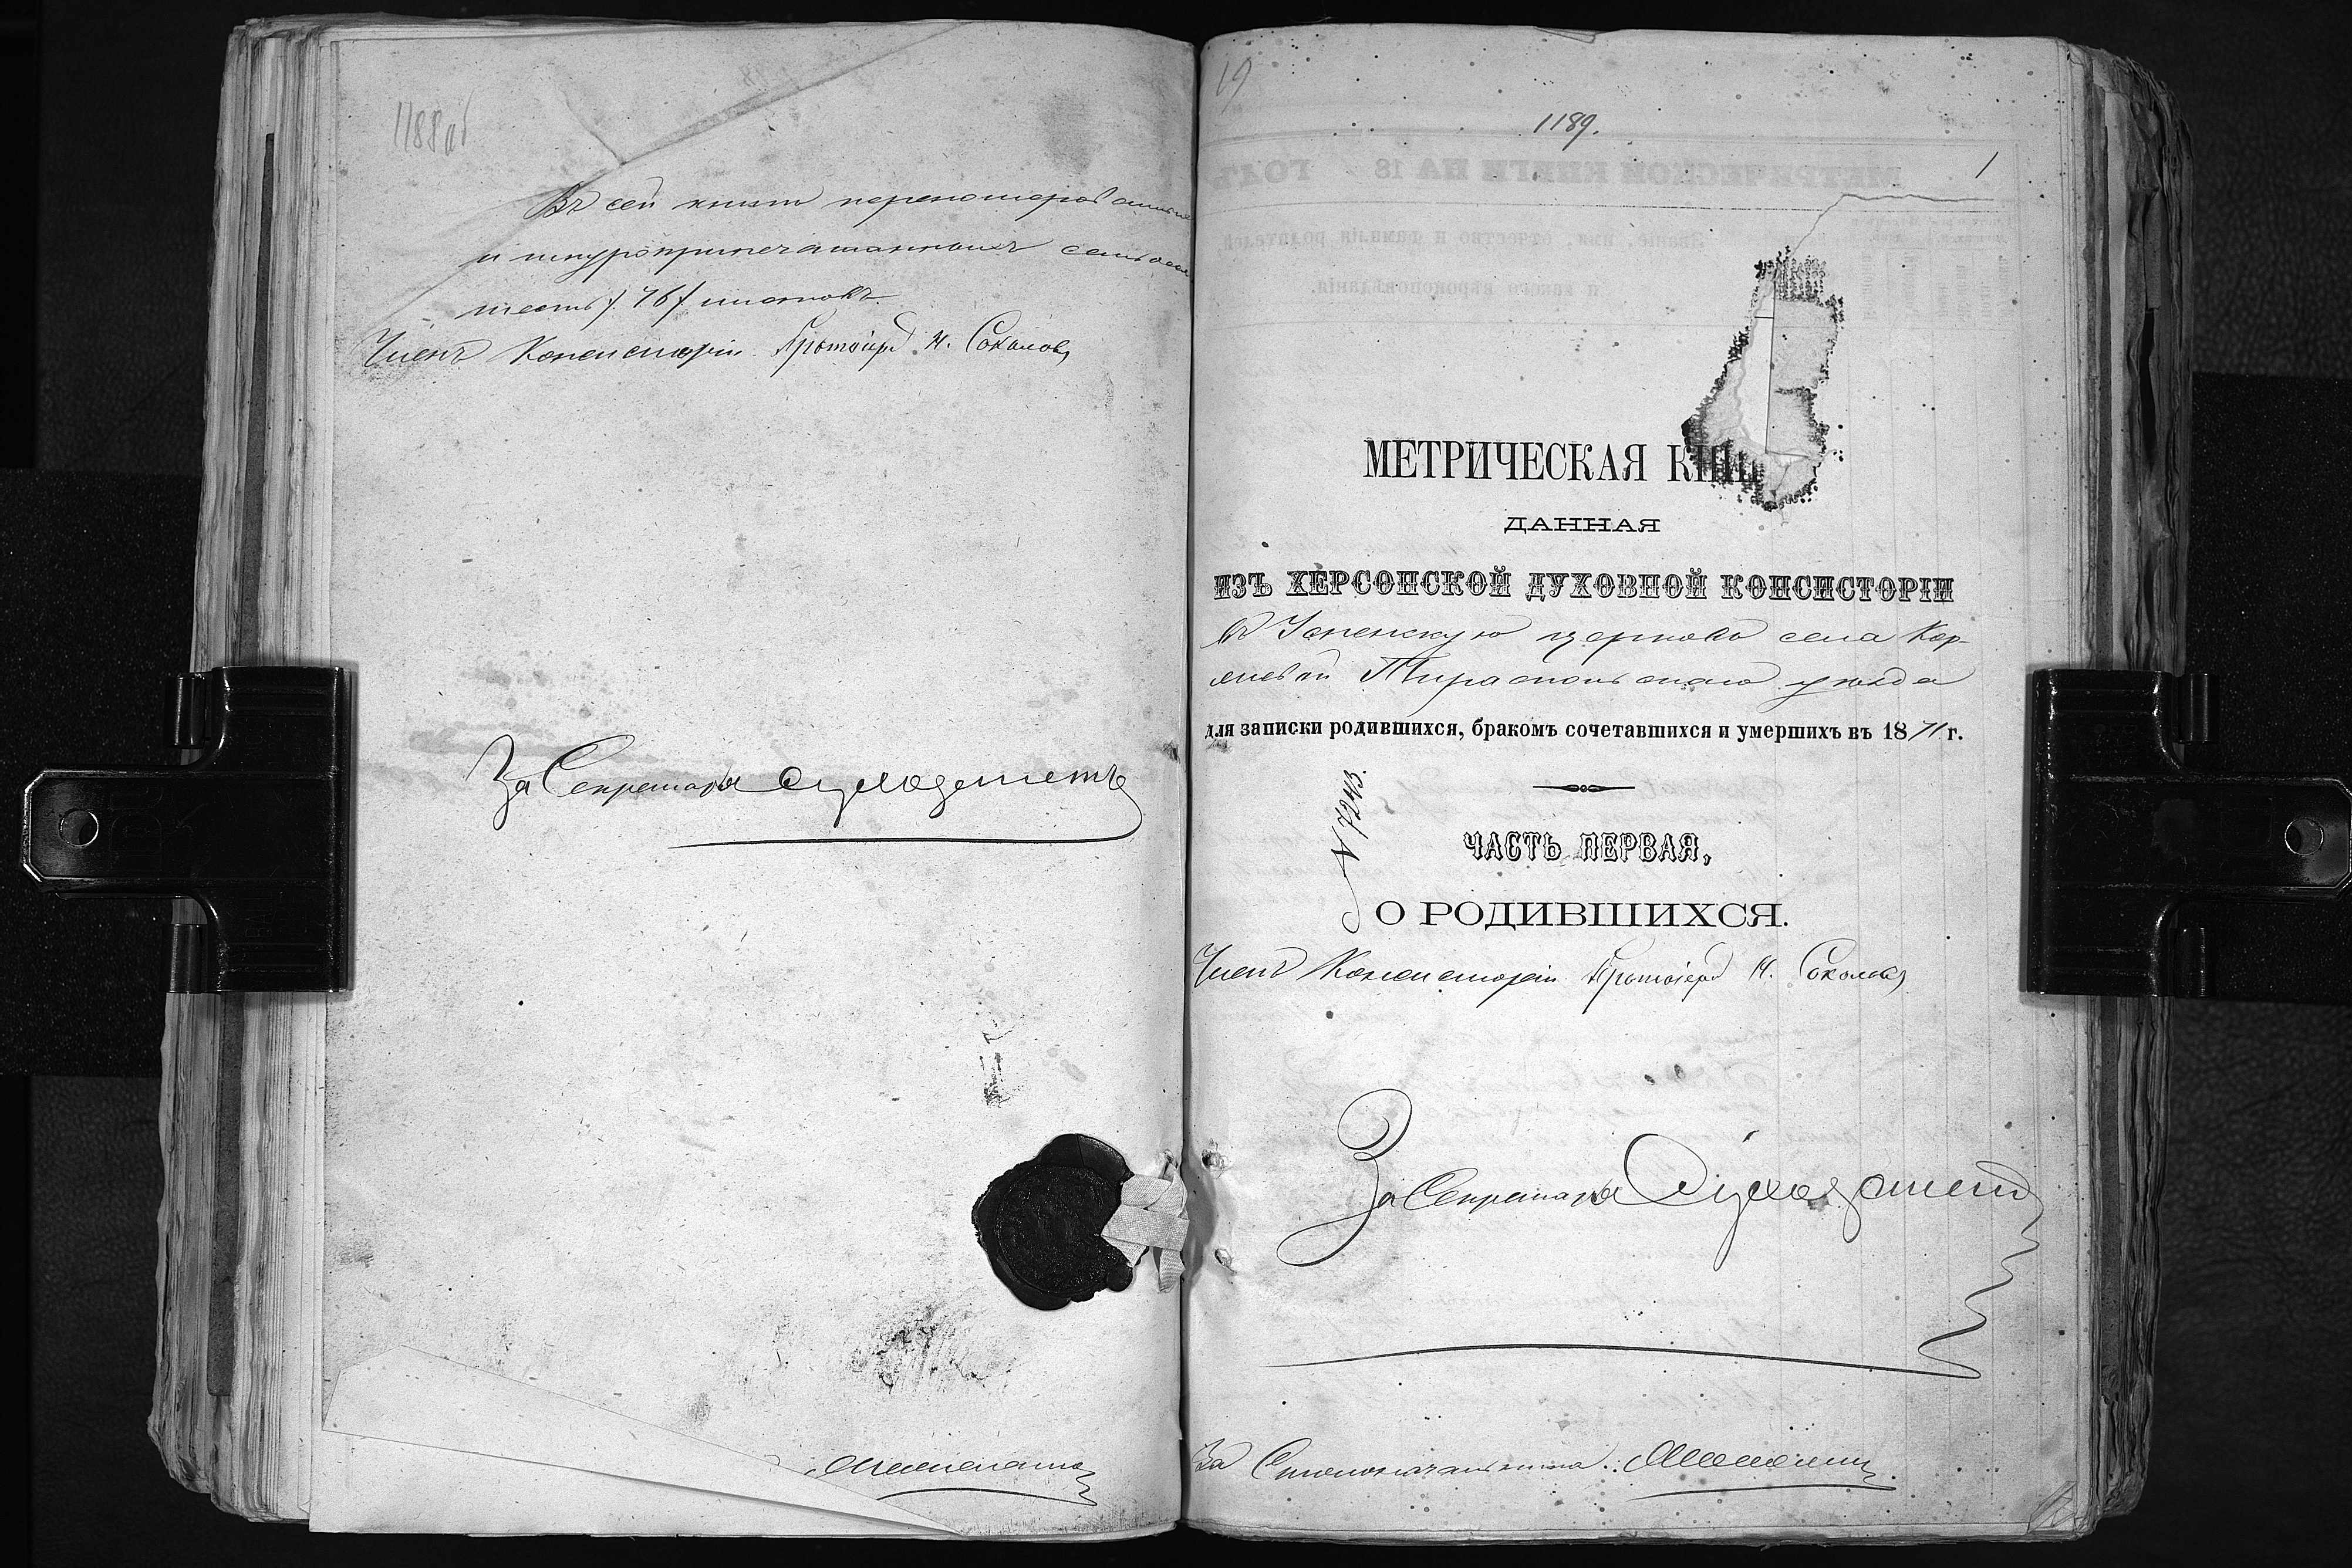 1188 об
Въ сей книге перенумерованныхъ
и шнуроприпечатанныхъ семьдесят
шесть /76/ листовъ
Членъ Консисторіи Протоіер. Н. Соколовъ
За Секретаря
19
1189.
1
МЕТРИЧЕСКАЯ КНИ
ДАННАЯ
ИЗЪ ХЕРСОНСКОЙ ДУХОВНОЙ КОНСИСТОРІИ
въ Успенскую церковь села Кор-
Тираспольскаго уезда
для записки родившихся, бракомъ сочетавшихся и умершихъ въ 1871 г.
N 7243.
ЧАСТЬ ПЕРВАЯ,
О РОДИВШИХСЯ.
Членъ Консисторіи Протоіер. Н. Соколовъ
За Секретаря
За Столоначальника